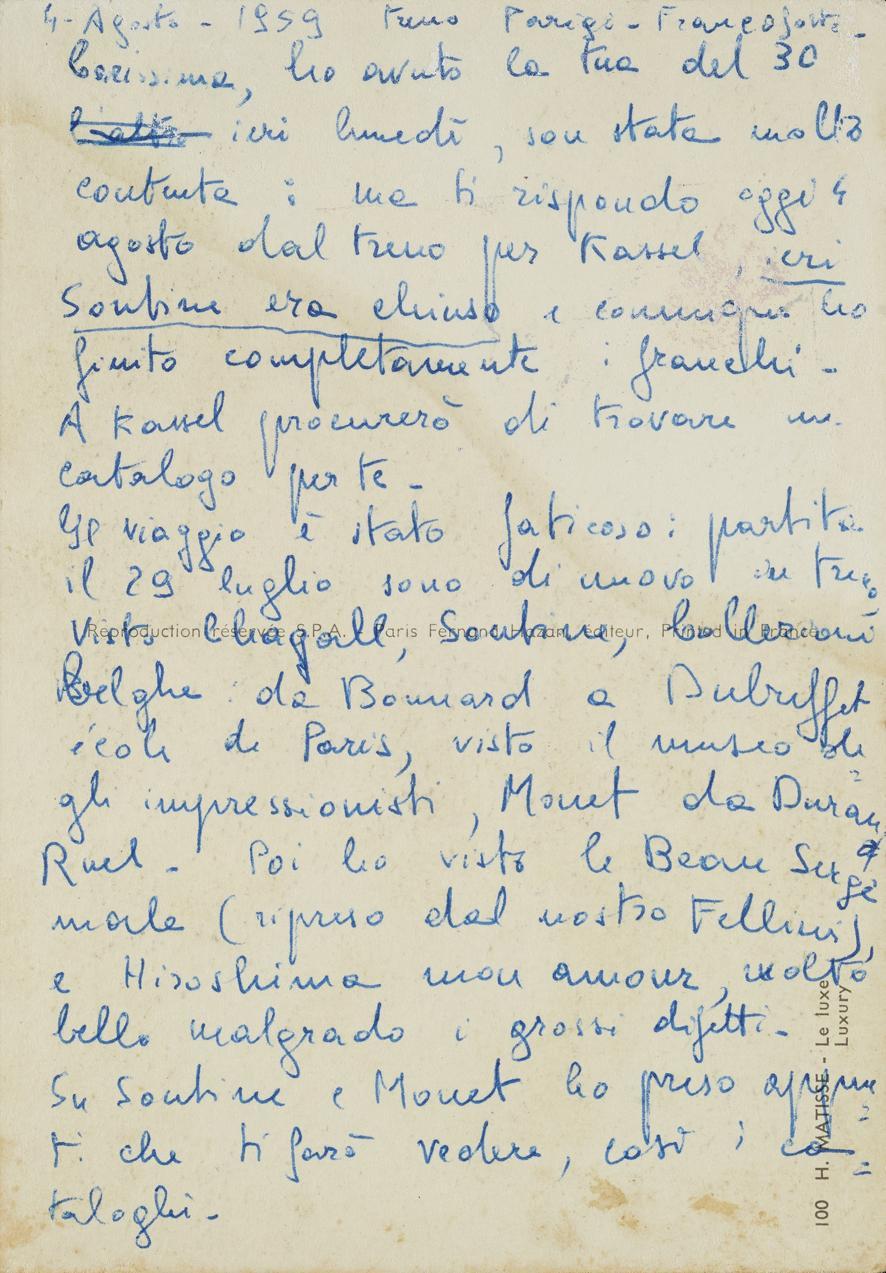 4- Agosto - 1959 treno Parigi - Francoforte -
Carissima, ho avuto la tua del 30
l'altro ieri lunedì, son stata molto
contenta : ma ti rispondo oggi 4
agosto dal treno per Kassel, ieri
Soutine era chiuso e comunque ho
finito completamente i franchi -
A Kassel procurerò di trovare un
catalogo per te -
Il viaggio è stato faticoso : partita
il 29 luglio sono di nuovo in treno
visto Chagall, Soutine, collezioni
Reproduction réservée S.P.A. Paris Fernand Hazan, éditeur, Printed in France
belghe da Bonnard a Dubuffet
école de Paris, visto il museo de=
gli impressionisti, Monet da Duran
Ruel - Poi ho visto le Beau Serge
male (ripreso dal nostro Fellini),
e Hiroshima mon amour, molto
bello malgrado i grossi difetti -
Su Soutine e Monet ho preso appun=
ti che ti farò vedere, così i ca=
taloghi -
100 H. MATISSE - Le luxe
Luxury